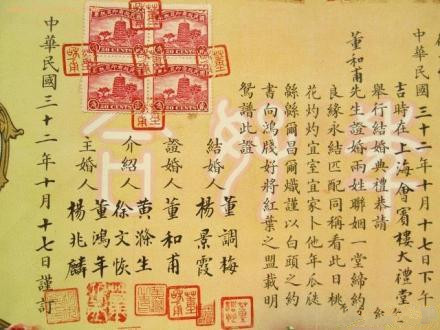 中華民國三十二年十月十七日下午
吉時在上海會賓樓大禮堂
舉行結婚典禮恭請
董和甫先生證婚兩姓聯姻一堂締約
良緣永結匹配同稱看此日桃
花灼灼宜室宜家卜他年瓜瓞
緜緜爾昌爾熾謹以白頭之約
書向鴻牋好將紅葉之盟載明
鴛譜此證
結婚人
董調梅
楊景霞
證婚人 董和甫
介紹人
黃滌生
徐文恢
主婚人
董鴻年
楊兆麟
中華民國三十二年十月十七日謹訂
20 CENTS
20 CENTS